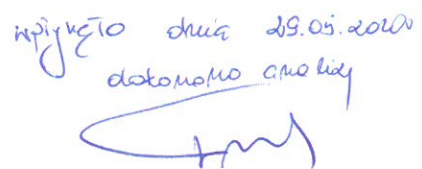 wpłynęło dnia 29.05.2020
dokonano analizy